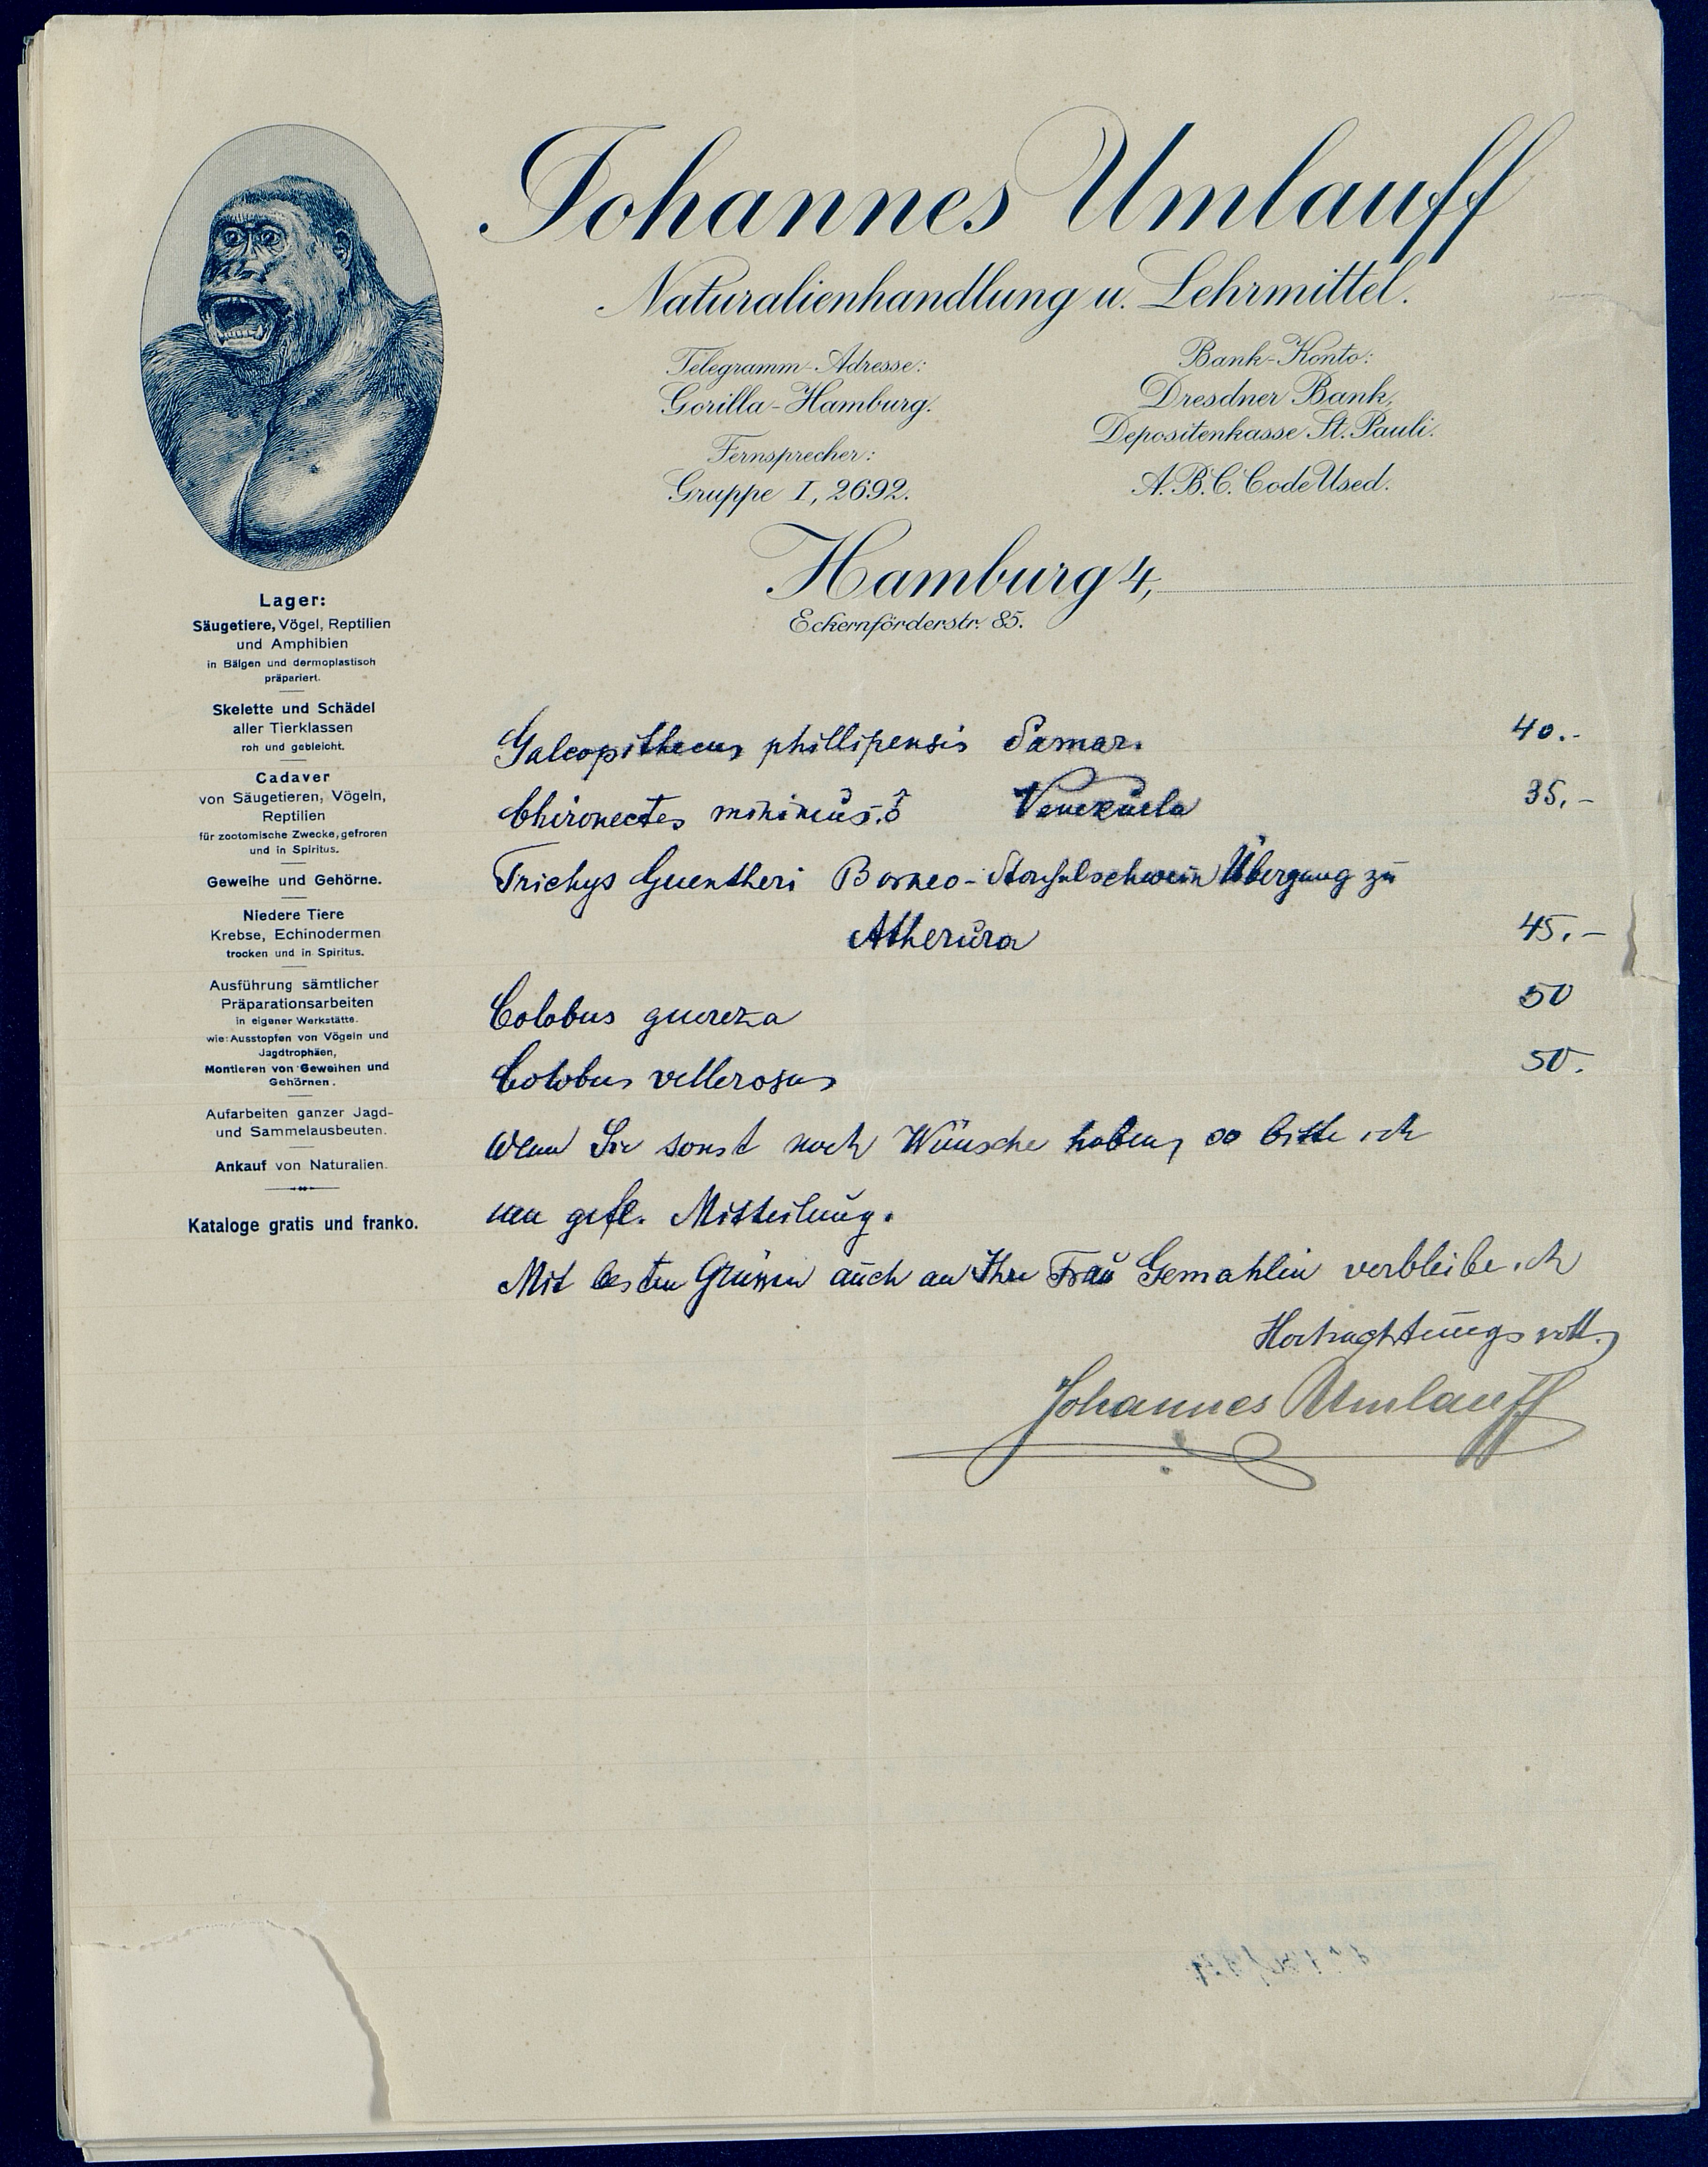 Johannes Umlauff
Naturalienhandlung u. Lehrmittel.
Telegramm-Adresse:
Gorilla-Hamburg.
Fernsprecher:
Gruppe I, 2692.
Bank-Konto:
Dresdner Bank,
Depositenkasse St. Pauli.
A.B.C. Code Used.
Hamburg 4,
Eckernförderstr. 85.
Lager:
Säugetiere, Vögel, Reptilien
und Amphibien
in Bälgen und dermoplastisch
präpariert.
Skelette und Schädel
aller Tierklassen
roh und gebleicht.
Cadaver
von Säugetieren, Vögeln,
Reptilien
für zootomische Zwecke, gefroren
und in Spiritus.
Geweihe und Gehörne.
Niedere Tiere
Krebse, Echinodermen
trocken und in Spiritus.
Ausführung sämtlicher
Präparationsarbeiten
in eigener Werkstätte.
wie: Ausstopfen von Vögeln und
Jagdtrophäen,
Montieren von Geweihen und
Gehörnen.
Aufarbeiten ganzer Jagd-
und Sammelausbeuten.
Ankauf von Naturalien.
Kataloge gratis und franko.
Galeopithecus phillipensis Samar. 40.-
Chironectes minimus ♂ Venezuela 35.-
Trichys Guentheri Borneo-Stachelschwein Übergang zu
Atherura 45.-
Colobus guereza 50
Colobus vellerosus 50.
Wenn Sie sonst noch Wünsche haben, so bitte ich
um gefl. Mitteilung.
Mit besten Grüssen auch an Ihre Frau Gemahlin verbleibe ich
Hochachtungsvoll
Johannes Umlauff